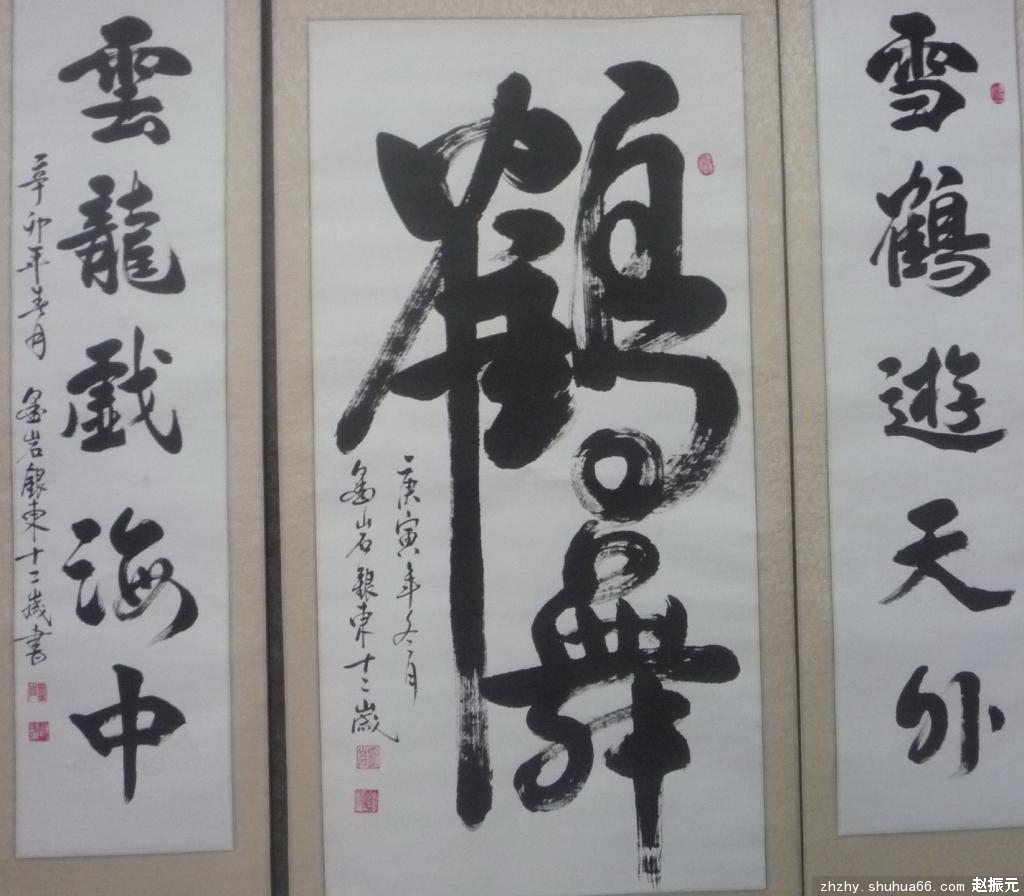 雪鶴遊天外
鶴舞
庚寅年冬月
岩銀東十二歲
雲龍戯海中
辛卯年春月
岩銀東十二歲書
zhzhy.shuhua66.com 赵振元